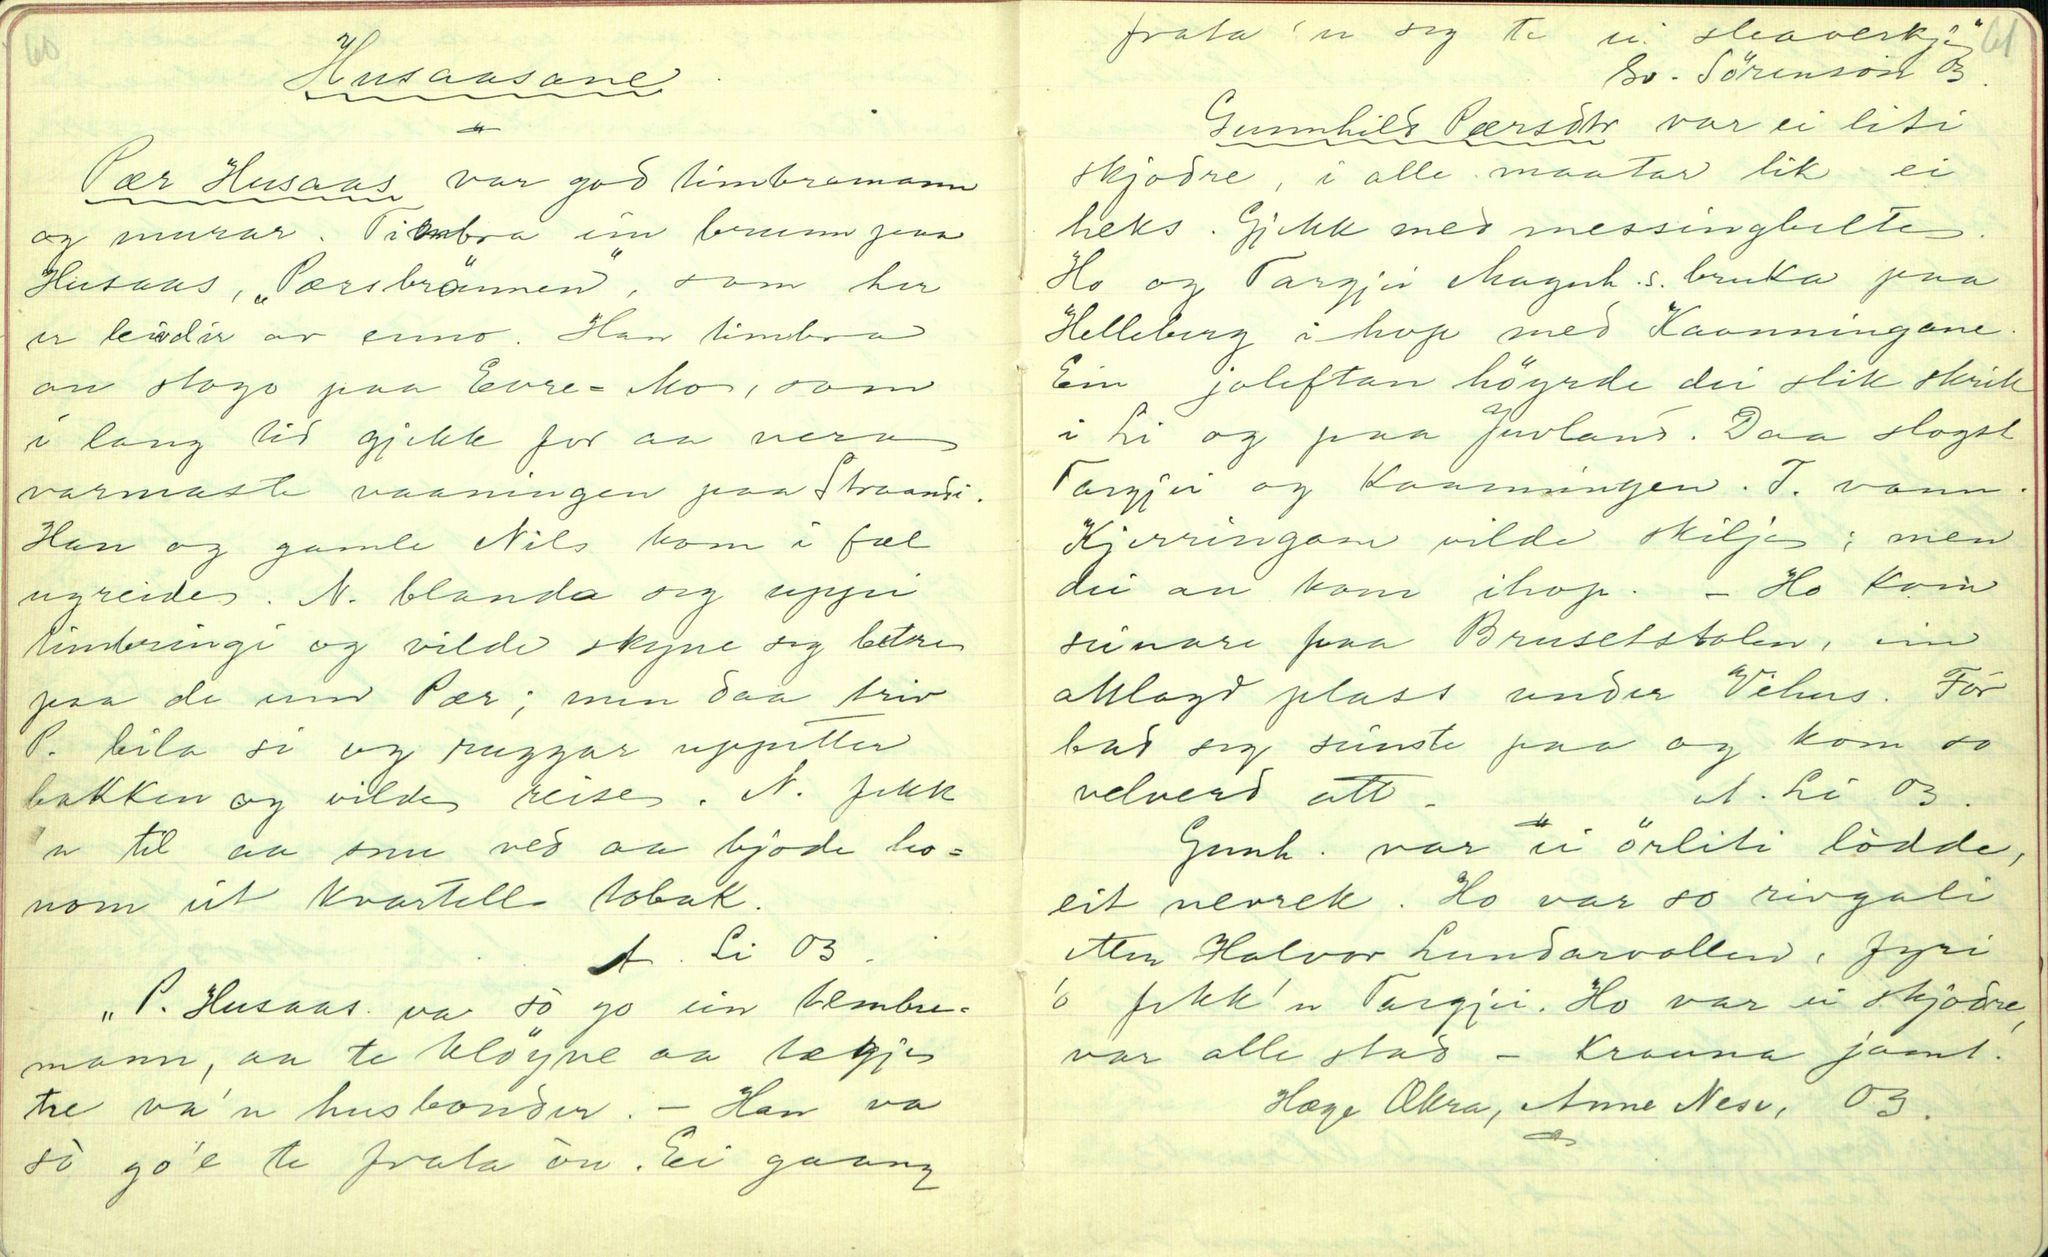 60
Husaasane
Pær Husaas var god timbramann
og murar. Timbra ein brunn paa
Husaas, „Pærsbrünnen", som her
er leivdir av enno. Han timbra
au stogo paa Evre-Mo, som
i lang tid gjekk for aa vera
varmaste vaaningen paa Straandi.
Han og gamle Nils kom i fæl
ugreide. N. blanda seg uppi
timbringi og vilde skyne seg betre
paa de enn Pær; men daa treiv
P. bila si og ruggar uppetter
bakken og vilde reise. N. fekk
'n til aa snu ved aa bjode ho=
nom eit kvartell tobak.
A. Li 03.
„P. Husaas va so go ein tembre=
mann, aa te kløyve aa tægje
tre va'n husbonder. — Han va
so go'e te frata òu. Ei gaang
61
frata 'n seg te ei sleaverkje"
Sv. Sörenson 03.
Gunnhild Pærsdtr var ei liti
skjodre, i alle maatar lik ei
heks. Gjekk med messingbelte.
Ho og Targjei Magnh.s. bruka paa
Helleberg i hop med Kaanningane.
Ein joleftan höyrde dei slik skrik
i Li og paa Juvland. Daa slogst
Targjei og Kaanningen. T. vann.
Kjerringane vilde skilje; men
dei au kom ihop. — Ho kom
seinare paa Brusetstolen, ein
attlagd plass under Vehus. För
bad seg seinste paa og kom so
velverd att. A. Li 03.
Gunh. var ei örliti lòdde,
eit nevrek. Ho var so rivgali
etter Halvor Lundarvollen, fyri
'o fekk 'n Targjei. Ho var ei skjodre,
var alle stad – krauna jamt.
Hæge Økra, Anne Nese, 03.